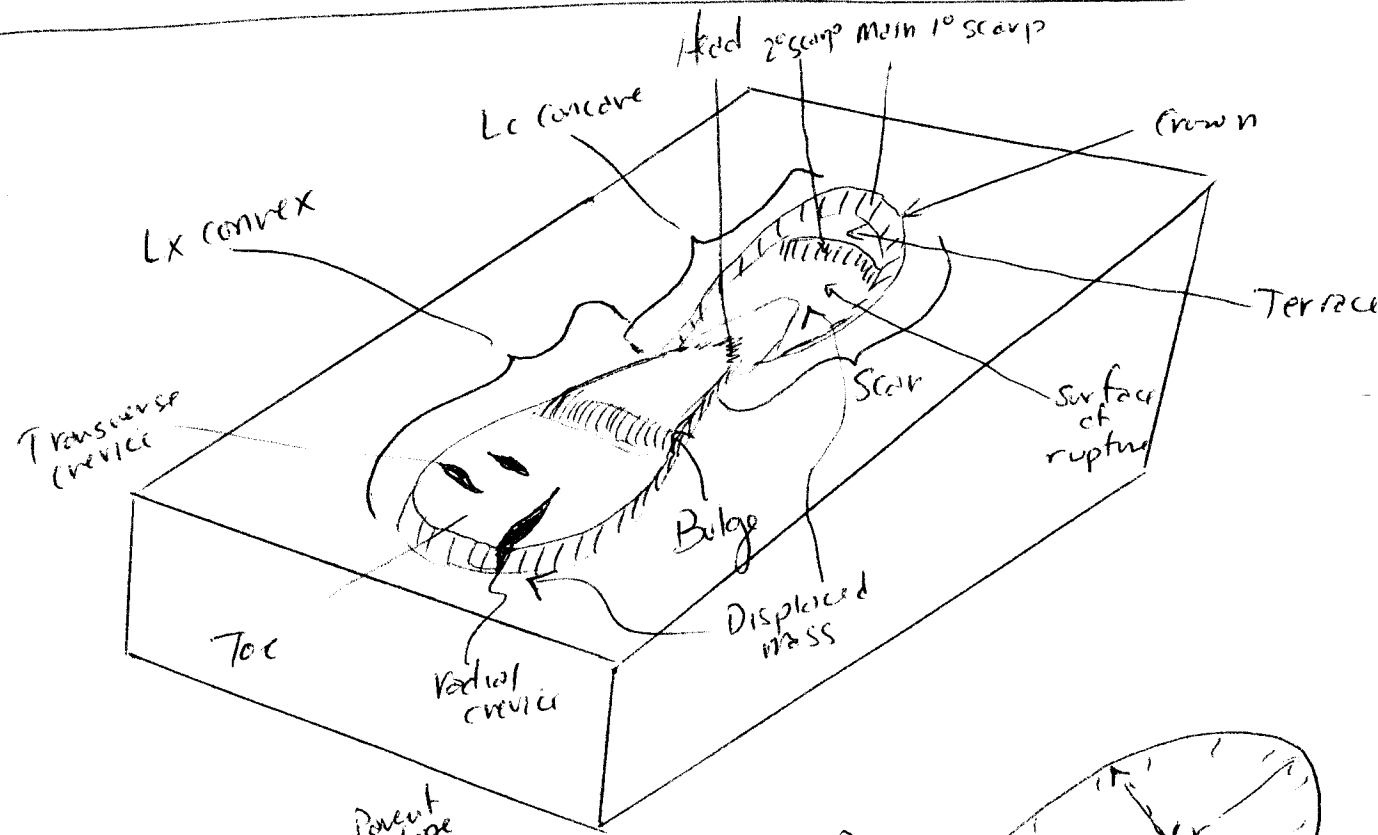 Head 2° scarp Main 1° scarp
Lc concave
Crown
Lx convex
Terrace
Scar
Surface
of
rupture
Transverse
crevice
Bulge
Displaced
mass
Toe
radial
crevice
Parent